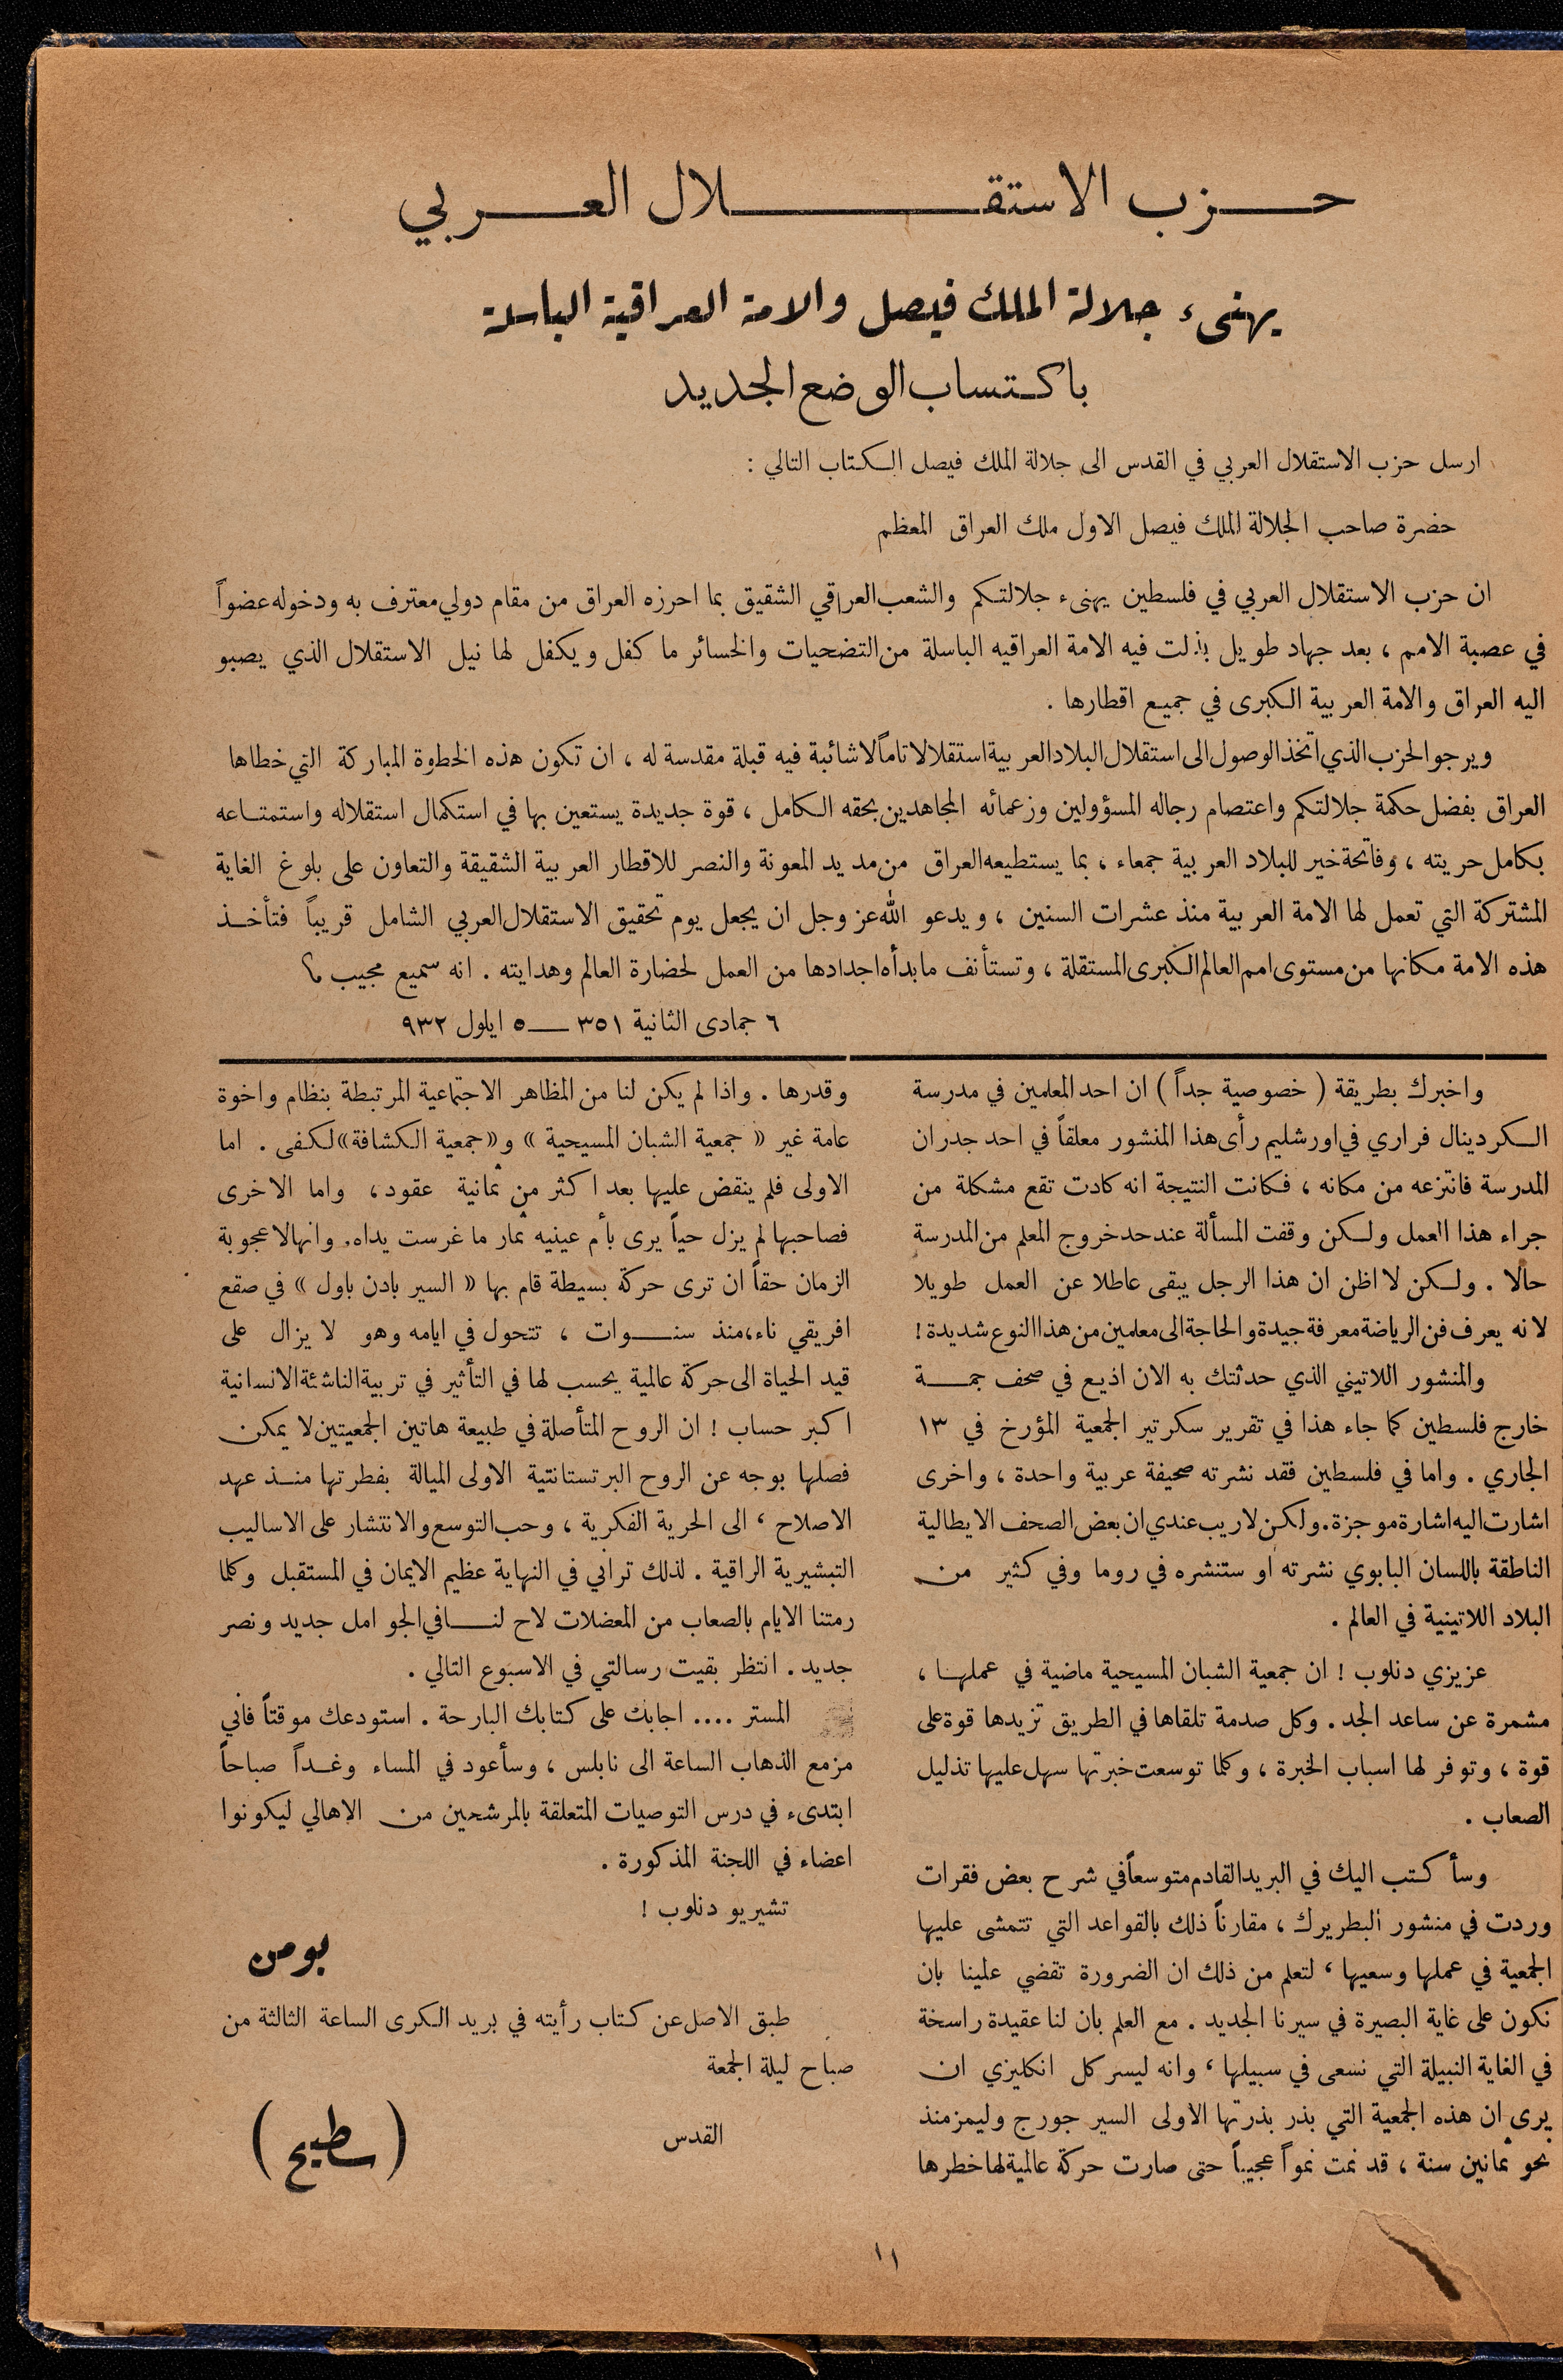 حزب الاستقلال العربي
يهنىء جلالة الملك فيصل والامة العراقية الباسلة
باكتساب الوضع الجديد
ارسل حزب الاستقلال العربي في القدس الى جلالة الملك فيصل الكتاب التالي :
حضرة صاحب الجلالة الملك فيصل الاول ملك العراق المعظم
ان حزب الاستقلال العربي في فلسطين يهنىء جلالتكم والشعب العراقي الشقيق بما احرزه العراق من مقام دولي معترف به ودخوله عضواً
في عصبة الامم ، بعد جهاد طويل بذلت فيه الامة العراقيه الباسلة من التضحيات والخسائر ما كفل ويكفل لها نيل الاستقلال الذي يصبو
اليه العراق والامة العربية الكبرى في جميع اقطارها .
ويرجو الحزب الذي اتخذ الوصول الى استقلال البلاد العربية استقلالا تاماً لا شائبة فيه قبلة مقدسة له ، ان تكون هذه الخطوة المباركة التي خطاها
العراق بفضل حكمة جلالتكم واعتصام رجاله المسؤولين وزعمائه المجاهدين بحقه الكامل ، قوة جديدة يستعين بها في استكمال استقلاله واستمتاعه
بكامل حريته ، وفاتحة خير للبلاد العربية جمعاء ، بما يستطيعه العراق من مديد المعونة والنصر للاقطار العربية الشقيقة والتعاون على بلوغ الغاية
المشتركة التي تعمل لها الامة العربية منذ عشرات السنين ، ويدعو الله عز وجل ان يجعل يوم تحقيق الاستقلال العربي الشامل قريباً فتأخذ
هذه الامة مكانها من مستوى امم العالم الكبرى المستقلة ، وتستأنف ما بدأه اجدادها من العمل لحضارة العالم وهدايته . انه سميع مجيب
٦ جمادى الثانية ٣٥١ — ٥ ايلول ٩٣٢
واخبرك بطريقة ( خصوصية جداً ) ان احد المعلمين في مدرسة
الكردينال فراري في اورشليم رأى هذا المنشور معلقاً في احد جدران
المدرسة فانتزعه من مكانه ، فكانت النتيجة انه كادت تقع مشكلة من
جراء هذا العمل ولكن وقفت المسألة عند حد خروج المعلم من المدرسة
حالا . ولكن لا اظن ان هذا الرجل يبقى عاطلا عن العمل طويلا
لانه يعرف فن الرياضة معرفة جيدة والحاجة الى معلمين من هذا النوع شديدة !
والمنشور اللاتيني الذي حدثتك به الان اذيع في صحف جمة
خارج فلسطين كما جاء هذا في تقرير سكرتير الجمعية المؤرخ في ١٣
الجاري . واما في فلسطين فقد نشرته صحيفة عربية واحدة ، واخرى
اشارت اليه اشارة موجزة . ولكن لا ريب عندي ان بعض الصحف الايطالية
الناطقة باللسان البابوي نشرته او ستنشره في روما وفي كثير من
البلاد اللاتينية في العالم .
عزيزي دنلوب ! ان جمعية الشبان المسيحية ماضية في عملها ،
مشمرة عن ساعد الجد . وكل صدمة تلقاها في الطريق تزيدها قوة على
قوة ، وتوفر لها اسباب الخبرة ، وكلما توسعت خبرتها سهل عليها تذليل
الصعاب .
وسأكتب اليك في البريد القادم متوسعاً في شرح بعض فقرات
وردت في منشور البطريرك ، مقارناً ذلك بالقواعد التي تتمشى عليها
الجمعية في عملها وسعيها ، لتعلم من ذلك ان الضرورة تقضي علينا بان
نكون على غاية البصيرة في سيرنا الجديد . مع العلم بان لنا عقيدة راسخة
في الغاية النبيلة التي نسعى في سبيلها ، وانه ليسر كل انكليزي ان
يرى ان هذه الجمعية التي بذر بذرتها الاولى السير جورج وليمز منذ
نحو ثمانين سنة ، قد نمت نمواً عجيباً حتى صارت حركة عالمية لها خطرها
وقدرها . واذا لم يكن لنا من المظاهر الاجتماعية المرتبطة بنظام واخوة
عامة غير « جمعية الشبان المسيحية » و« جمعية الكشافة » لكفى . اما
الاولى فلم ينقض عليها بعد اكثر من ثمانية عقود ، واما الاخرى
فصاحبها لم يزل حياً يرى بأم عينيه ثمار ما غرست يداه . وانها لاعجوبة
الزمان حقاً ان ترى حركة بسيطة قام بها « السير بادن باول » في صقع
افريقي ناء ، منذ سنوات ، تتحول في ايامه وهو لا يزال على
قيد الحياة الى حركة عالمية يحسب لها في التأثير في تربية الناشئة الانسانية
اكبر حساب ! ان الروح المتأصلة في طبيعة هاتين الجمعيتين لا يمكن
فصلها بوجه عن الروح البرتستانتية الاولى الميالة بفطرتها منذ عهد
الاصلاح ، الى الحرية الفكرية ، وحب التوسع والانتشار على الاساليب
التبشيرية الراقية . لذلك تراني في النهاية عظيم الايمان في المستقبل وكلما
رمتنا الايام بالصعاب من المعضلات لاح لنا في الجو امل جديد ونصر
جديد . انتظر بقيت رسالتي في الاسبوع التالي .
المستر .... اجابك على كتابك البارحة . استودعك موقتاً فاني
مزمع الذهاب الساعة الى نابلس ، وسأعود في المساء وغداً صباحاً
ابتدىء في درس التوصيات المتعلقة بالمرشحين من الاهالي ليكونوا
اعضاء في اللجنة المذكورة .
تشيريو دنلوب !
بومن
طبق الاصل عن كتاب رأيته في بريد الكرى الساعة الثالثة من
صباح ليلة الجمعة
القدس
( سطيح )
١١